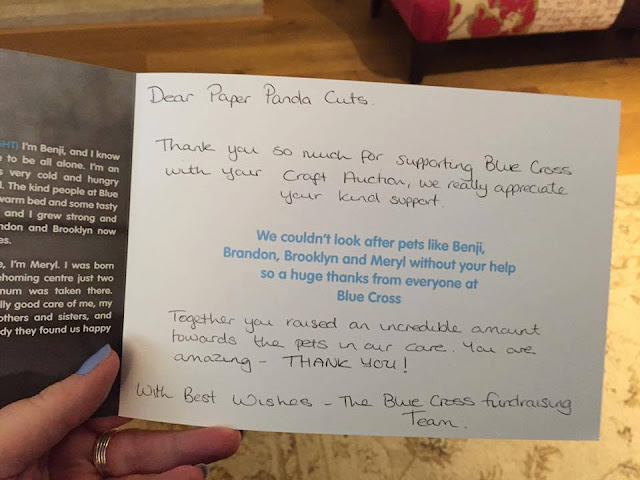 GHT) I'm Benji, and I know
to be all alone. I'm an
very cold and hungry
The kind people at Blue
warm bed and some tasty
and I grew strong and
ndon and Brooklyn now
es.
e, I'm Meryl. I was born
ehoming centre just two
mum was taken there.
lly good care of me, my
others and sisters, and
dy they found us happy
Dear Paper Panda Cuts.
Thank you so much for supporting Blue Cross
with your Craft Auction, we really appreciate
your kind support.
We couldn't look after pets like Benji,
Brandon, Brooklyn and Meryl without your help
so a huge thanks from everyone at
Blue Cross
Together you raised an incredible amount
towards the pets in our care. You are
amazing - THANK YOU!
With Best Wishes - The Blue Cross fundraising
Team.